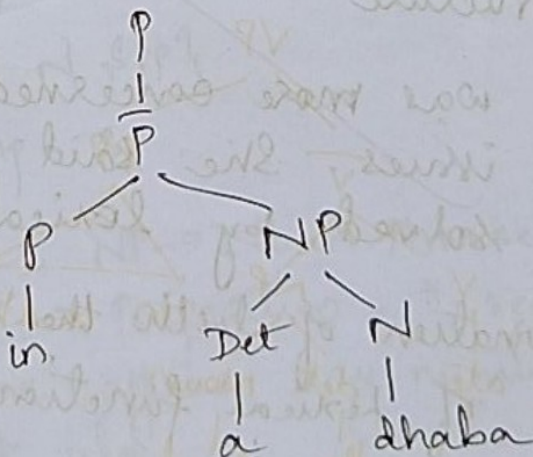 P
P̄
P NP
in Det N
a dhaba